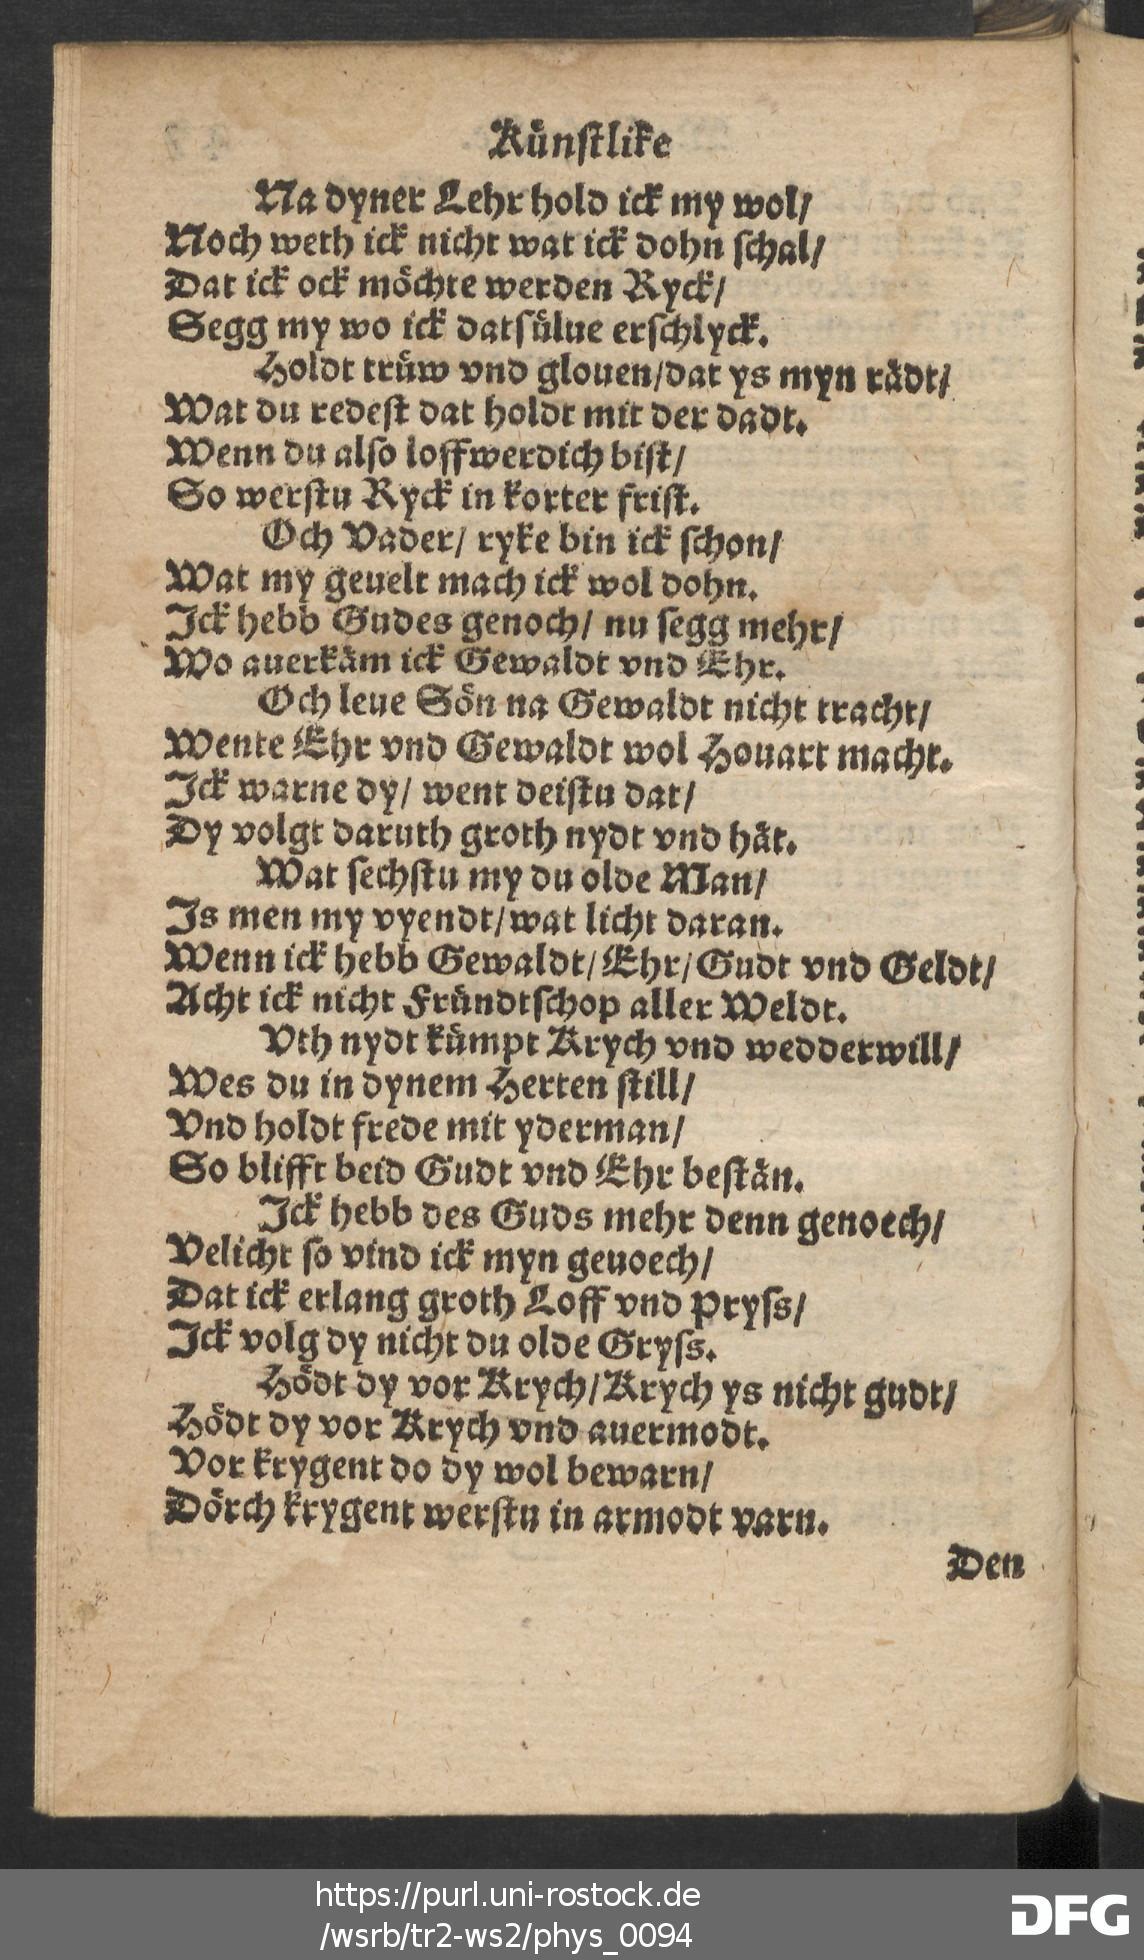 Künstlike
Na dyner Lehr hold ick my wol/
Noch weth ick nicht wat ick dohn schal/
Dat ick ock möchte werden Ryck/
Segg my wo ick datsülue erschlyck.
Holdt trüw vnd glouen/dat ys myn rädt/
Wat du redest dat holdt mit der dadt.
Wenn du also loffwerdich bist/
So werstu Ryck in korter frist.
Och Vader/ ryke bin ick schon/
Wat my geuelt mach ick wol dohn.
Ick hebb Gudes genoch/ nu segg mehr/
Wo auerkäm ick Gewaldt vnd Ehr.
Och leue Sön na Gewaldt nicht tracht/
Wente Ehr vnd Gewaldt wol Houart macht.
Ick warne dy/ went deistu dat/
Dy volgt daruth groth nydt vnd hät.
Wat sechstu my du olde Man/
Is men my vyendt/wat licht daran.
Wenn ick hebb Gewaldt/Ehr/Gudt vnd Geldt/
Acht ick nicht Fründtschop aller Weldt.
Vth nydt kümpt Krych vnd wedderwill/
Wes du in dynem Herten still/
Vnd holdt frede mit yderman/
So blifft beid Gudt vnd Ehr bestän.
Ick hebb des Guds mehr denn genoech/
Velicht so vind ick myn geuoech/
Dat ick erlang groth Loff vnd Pryss/
Ick volg dy nicht du olde Gryss.
Hödt dy vor Krych/Krych ys nicht gudt/
Hödt dy vor Krych vnd auermodt.
Vor krygent do dy wol bewarn/
Dörch krygent werstu in armodt varn.
Den
https://purl.uni-rostock.de
/wsrb/tr2-ws2/phys_0094
DFG